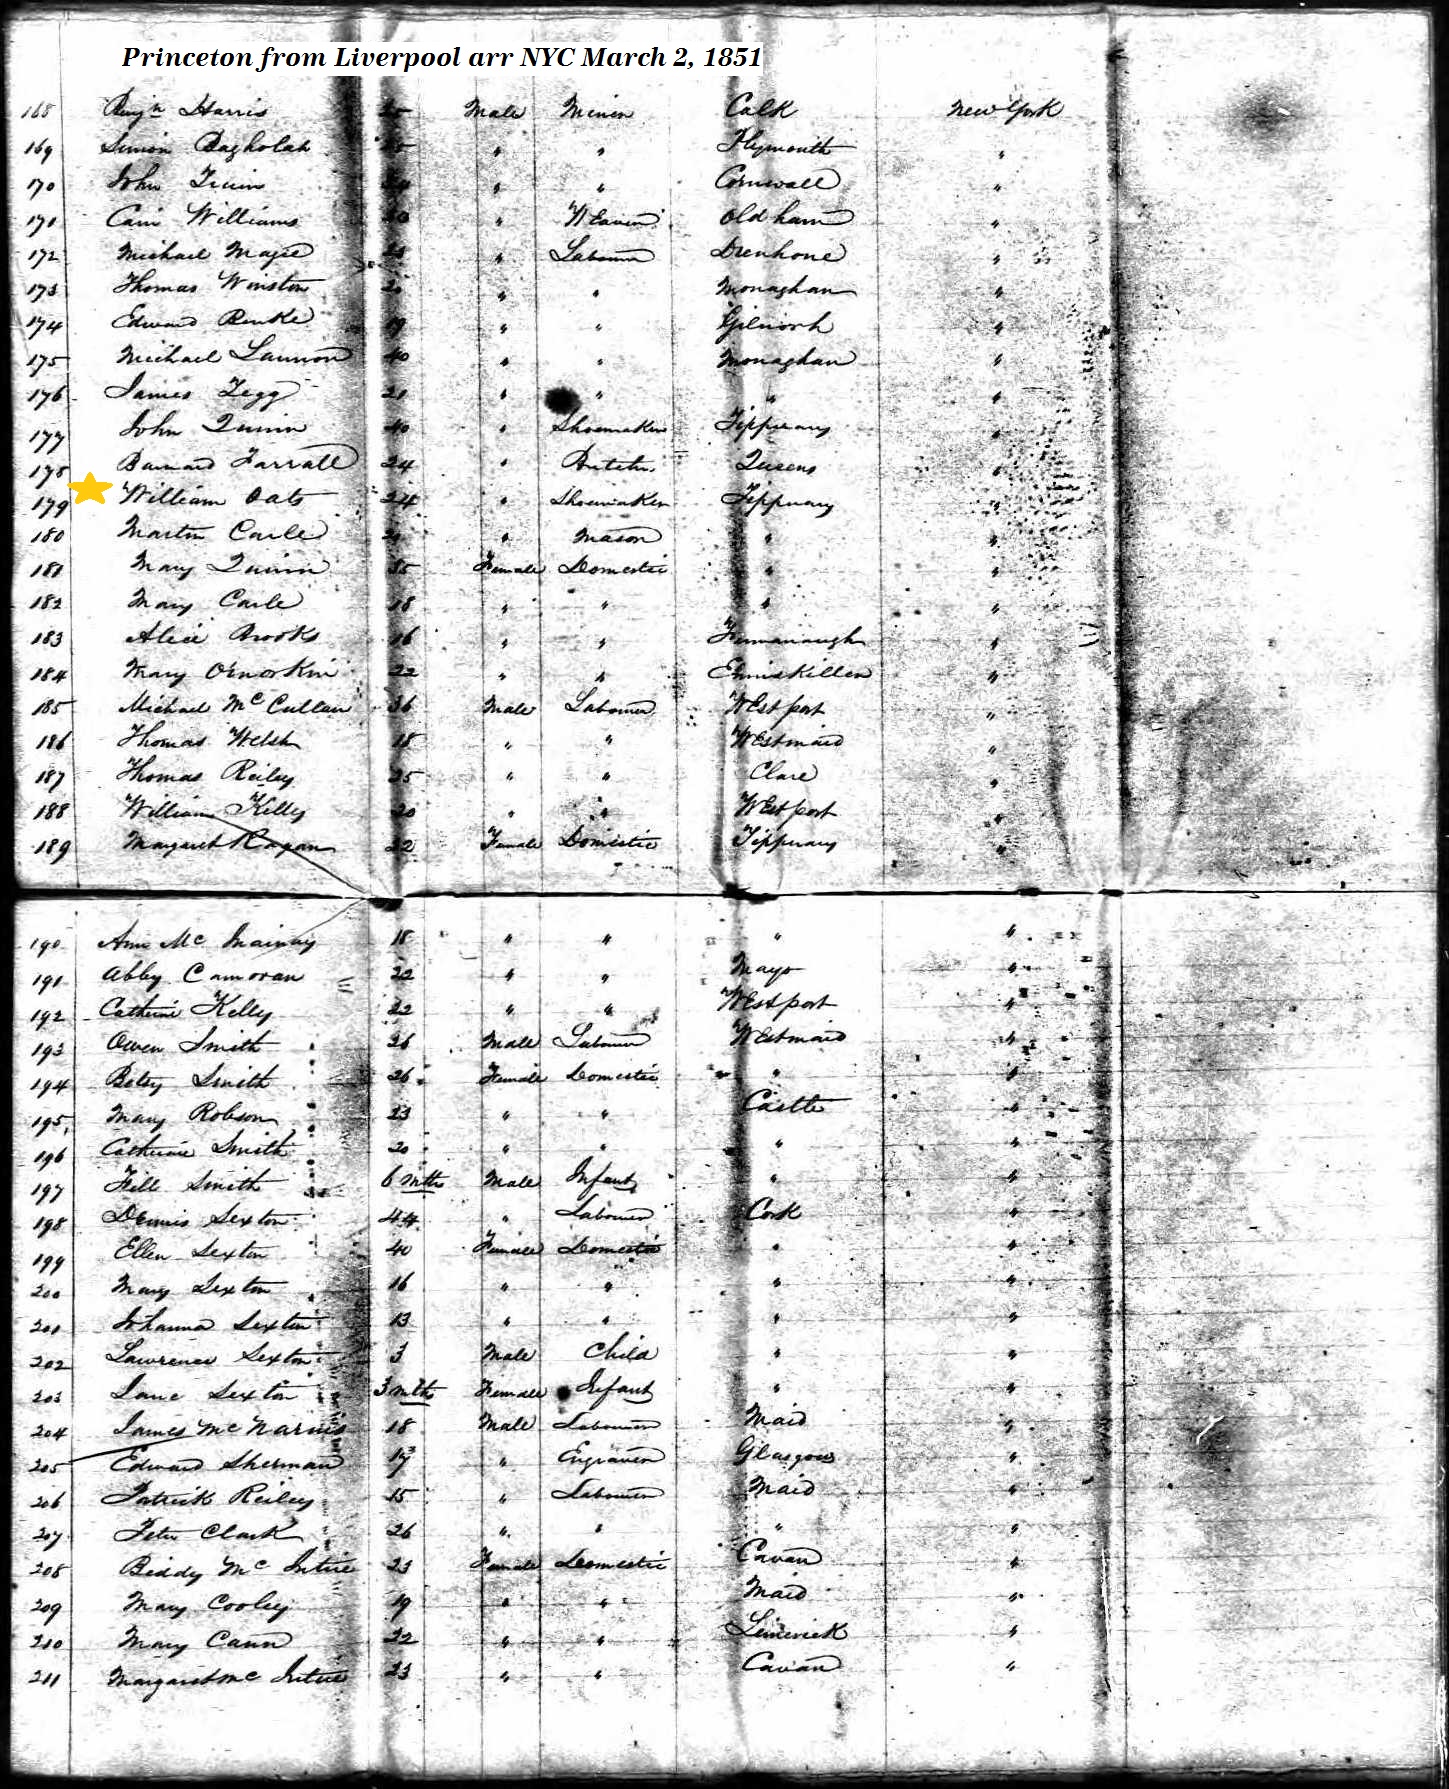 Princeton from Liverpool arr NYC March 2, 1851
168 Benjn Harris Male Miner New York
169 Simon " " Plymouth "
170 John " " Cornwall "
171 Williams " Weaver Oldham "
172 Michael Magee " Labourer "
173 Thomas Winston " " Monaghan "
174 Edward 19 " " "
175 Michael Lannon 40 " " Monaghan "
176 James Tegg 21 " " " "
177 John Quinn 40 " Shoemaker Tipperary "
178 Barnard Farrall 24 " Butcher Queens "
179 William Oats 24 " Shoemaker Tipperary "
180 Martin Carle " Mason " "
181 Mary Quinn 35 Female Domestic " "
182 Mary Carle 18 " " " "
183 Alice Brooks 16 " " Fermanaugh "
184 Mary 22 " " Enniskillen "
185 Michael McCullan 36 Male Labourer Westport "
186 Thomas Welsh 18 " " Westmaid "
187 Thomas Reiley 25 " " Clare "
188 William Kelly 20 " " Westport "
189 Margaret Ragan 22 Female Domestic Tipperary "
190 Ann Mc 18 " " " "
191 Abby Camoran 22 " " Mayo "
192 Catherine Kelly 22 " " Westport "
193 Owen Smith 26 Male Labourer Westmaid "
194 Betsy Smith 26 Female Domestic " "
195 Mary Robson 23 " " Castle "
196 Catherine Smith 20 " " " "
197 Smith 6 mths Male Infant " "
198 Dennis Sexton 44 " Labourer Cork "
199 Ellen Sexton 40 Female Domestic " "
200 Mary Sexton 16 " " " "
201 Johanna Sexton 13 " " " "
202 Lawrence Sexton 3 Male Child " "
203 Jane Sexton 3 mths Female Infant " "
204 James 18 Male Labourer Maid "
205 Edward Sherman " Engraver Glasgow "
206 Patrick Reiley 15 " Labourer Maid "
207 Peter Clark 26 " " " "
208 Biddy Mc Intire 23 Female Domestic Cavan "
209 Mary Cooley 19 " " Maid "
210 Mary Cann 22 " " Limerick "
211 Margaret Mc Intire 23 " " Cavan "